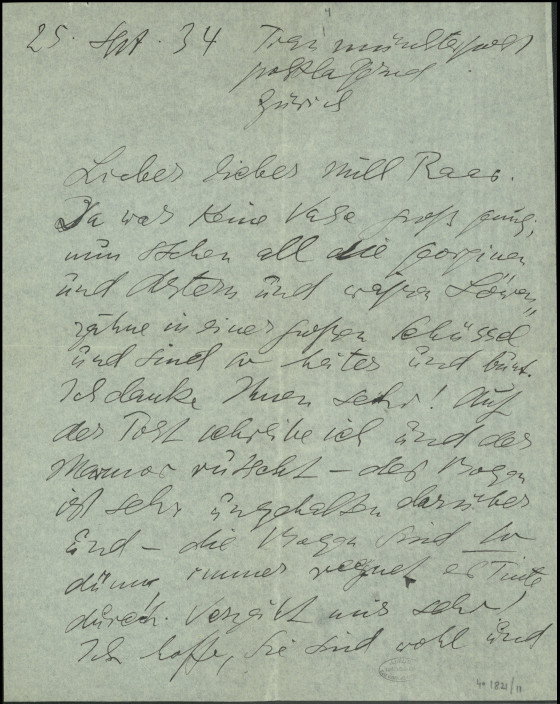 25. Sept. 34 Fraumünsterpost
postlagernd
Zürich
Lieber lieber Mill Raas.
Da war keine Vase groß genug,
nun stehen all die georginen
und Astern und weißen Löwen„
zähne in einer großen Schüssel
und sind so heiter und bunt.
Ich danke Ihnen sehr! Auf
der Post schreibe ich und der
Marmor rutscht – der Bogen
ist sehr ungehalten darüber
und – die Bogen sind so
dünn, immer regnet es Tinte
durch. Verzeiht mir sehr!
Ich hoffe, Sie sind wohl und
40 1821/11